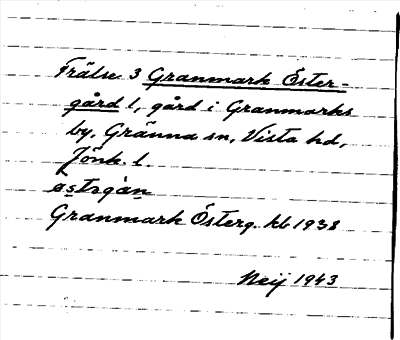 Frälse 3 Granmark Öster-
gård 1, gård i Granmarks
by, Gränna sn, Vista hd,
Jönk. l.
östəgån
Granmark Österg. kb 1938
Neij 1943